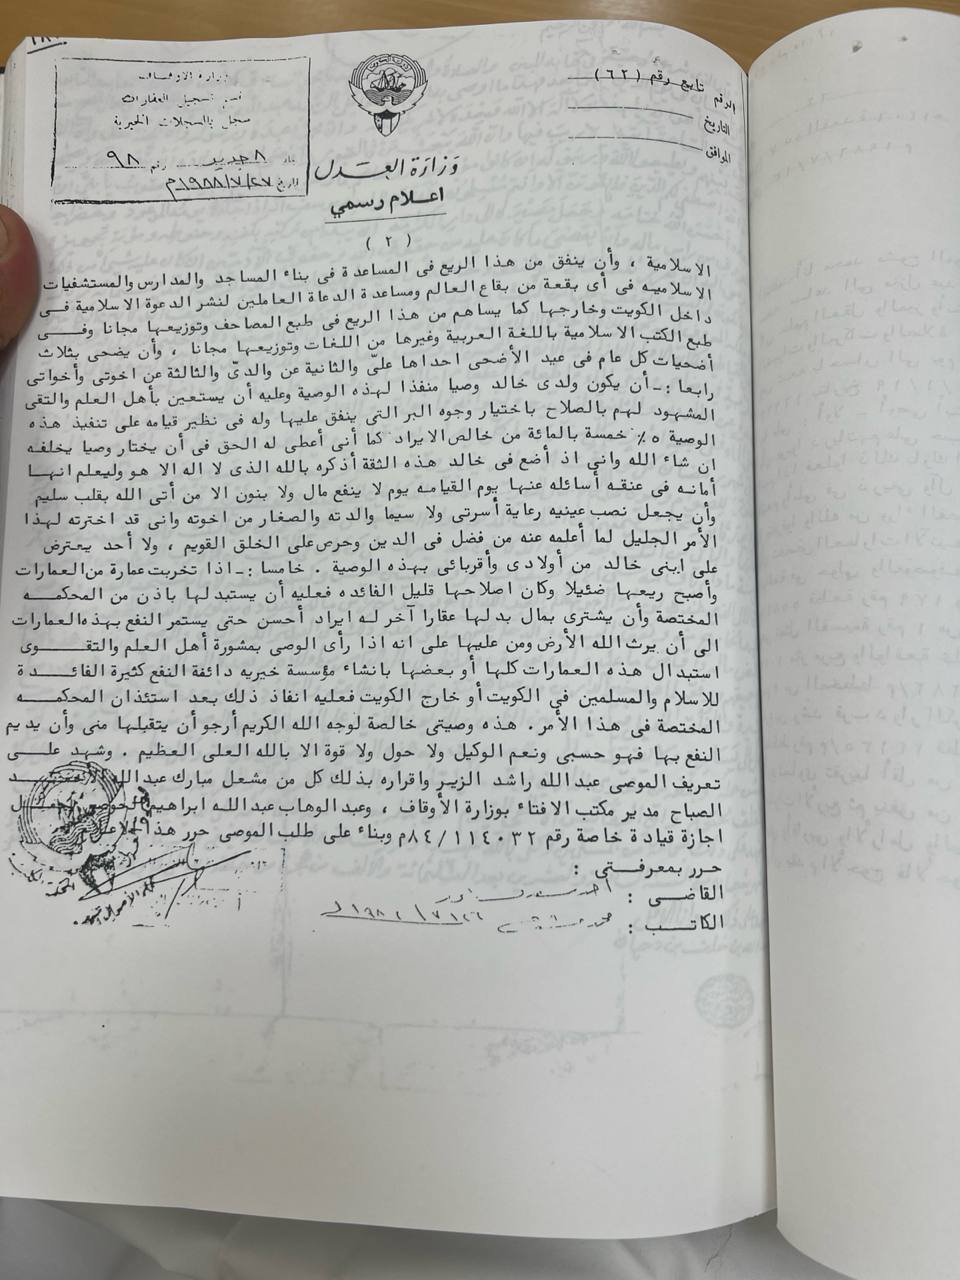 وزارة الاوقاف
قسم تسجيل العقارات
سجل بالسجلات الخيرية
٨ جديد رقم ٩٨
تاريخ ١٩٨٨/٧/٢٧م
الرقم تابع رقم (٦٢)
التاريخ
الموافق
وزارة العدل
اعلام رسمي
( ٢ )
الاسلامية ، وأن ينفق من هذا الريع فى المساعدة فى بناء المساجد والمدارس والمستشفيات
الاسلاميه فى أى بقعة من بقاع العالم ومساعدة الدعاة العاملين لنشر الدعوة الاسلامية فى
داخل الكويت وخارجها كما يساهم من هذا الريع فى طبع المصاحف وتوزيعها مجانا وفى
طبع الكتب الاسلامية باللغة العربية وغيرها من اللغات وتوزيعها مجانا ، وأن يضحى بثلاث
أضحيات كل عام فى عيد الأضحى احداها علىّ والثانية عن والدىّ والثالثة عن اخوتى وأخواتى
رابعا :ـ أن يكون ولدى خالد وصيا منفذا لهذه الوصية وعليه أن يستعين بأهل العلم والتقى
المشهود لهم بالصلاح باختيار وجوه البر التى ينفق عليها وله فى نظير قيامه على تنفيذ هذه
الوصية ٥٪ خمسة بالمائة من خالص الايراد كما أنى أعطى له الحق فى أن يختار وصيا يخلفه
ان شاء الله وانى اذ أضع فى خالد هذه الثقة أذكره بالله الذى لا اله الا هو وليعلم انها
أمانه فى عنقه أسائله عنها يوم القيامه يوم لا ينفع مال ولا بنون الا من أتى الله بقلب سليم
وأن يجعل نصب عينيه رعاية أسرتى ولا سيما والدته والصغار من اخوته وانى قد اخترته لهذا
الأمر الجليل لما أعلمه عنه من فضل فى الدين وحرص على الخلق القويم ، ولا أحد يعترض
على ابنى خالد من أولادى وأقربائى بهذه الوصية . خامسا :ـ اذا تخربت عمارة من العمارات
وأصبح ريعها ضئيلا وكان اصلاحها قليل الفائده فعليه أن يستبدلها باذن من المحكمه
المختصة وأن يشترى بمال بدلها عقارا آخر له ايراد أحسن حتى يستمر النفع بهذه العمارات
الى أن يرث الله الأرض ومن عليها على انه اذا رأى الوصى بمشورة أهل العلم والتقوى
استبدال هذه العمارات كلها أو بعضها بانشاء مؤسسة خيريه دائفة النفع كثيرة الفائدة
للاسلام والمسلمين فى الكويت أو خارج الكويت فعليه انفاذ ذلك بعد استئذان المحكمه
المختصة فى هذا الأمر. هذه وصيتى خالصة لوجه الله الكريم أرجو أن يتقبلها منى وأن يديم
النفع بها فهو حسبى ونعم الوكيل ولا حول ولا قوة الا بالله العلى العظيم . وشهد على
تعريف الموصى عبدالله راشد الزير واقراره بذلك كل من مشعل مبارك عبدالله
الصباح مدير مكتب الافتاء بوزارة الأوقاف ، وعبدالوهاب عبدالله ابراهيم
اجازة قيادة خاصة رقم ١١٤٠٣٢/٨٤م وبناء على طلب الموصى حرر هذا
حرر بمعرفتى :
القاضى :
الكاتب :